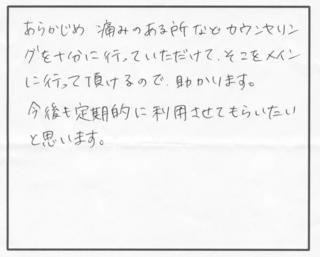 あらかじめ 痛みのある所などカウンセリン
グを十分に行っていただけて、そこをメイン
に行って頂けるので、助かります。
今後も定期的に利用させてもらいたい
と思います。